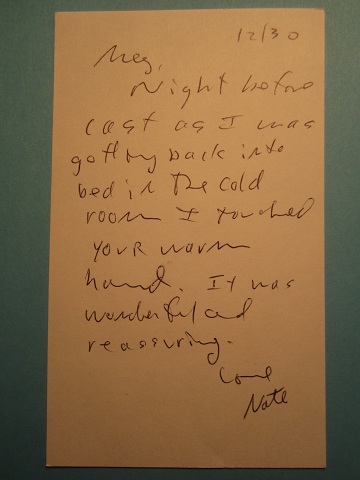 12/30
Meg,
Night before
last as I was
getting back into
bed in the cold
room I touched
your warm
hand. It was
wonderful and
reassuring.
Love
Nate